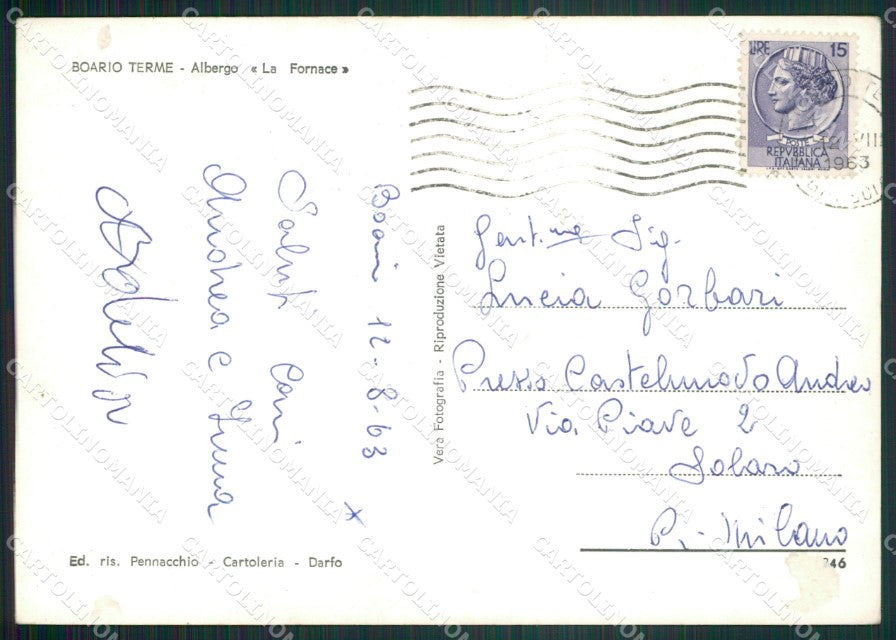 BOARIO TERME - Albergo « La Fornace »
LIRE 15
POSTE
REPVBBLICA
ITALIANA
1963
Boario 12-8-63
Saluti cari
Andrea e
Vera Fotografia - Riproduzione Vietata
Gent.ma Sig.
Lucia Gorbari
Presso Castelnuovo Andrea
Via Piave 2
Solaro
P. Milano
Ed. ris. Pennacchio - Cartoleria - Darfo
246
CARTOLINOMANIA